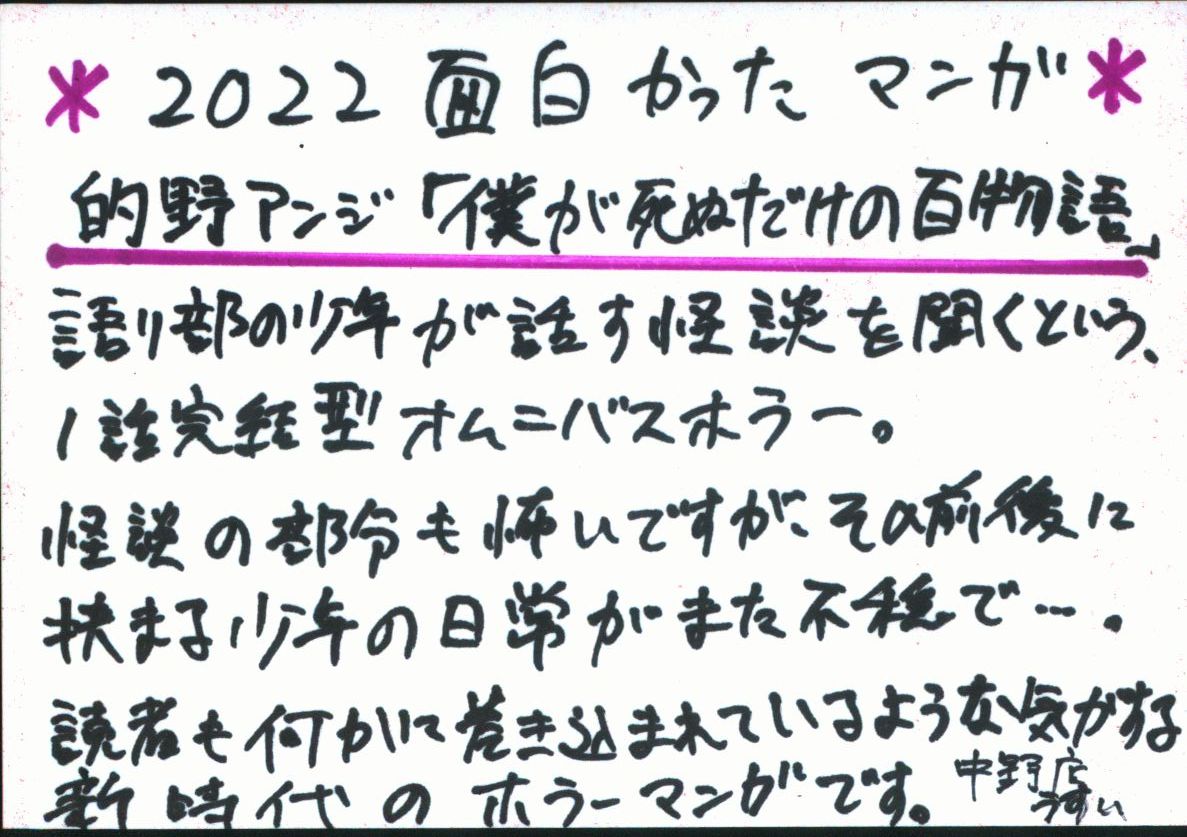 * 2022 面白かったマンガ *
的野アンジ「僕が死ぬだけの百物語」
語り部の少年が話す怪談を聞くという、
1話完結型オムニバスホラー。
怪談の部分も怖いですが、その前後に
挟まる少年の日常がまた不穏で…。
読者も何かに巻き込まれているような気がする
新時代のホラーマンガです。
中野店
うすい